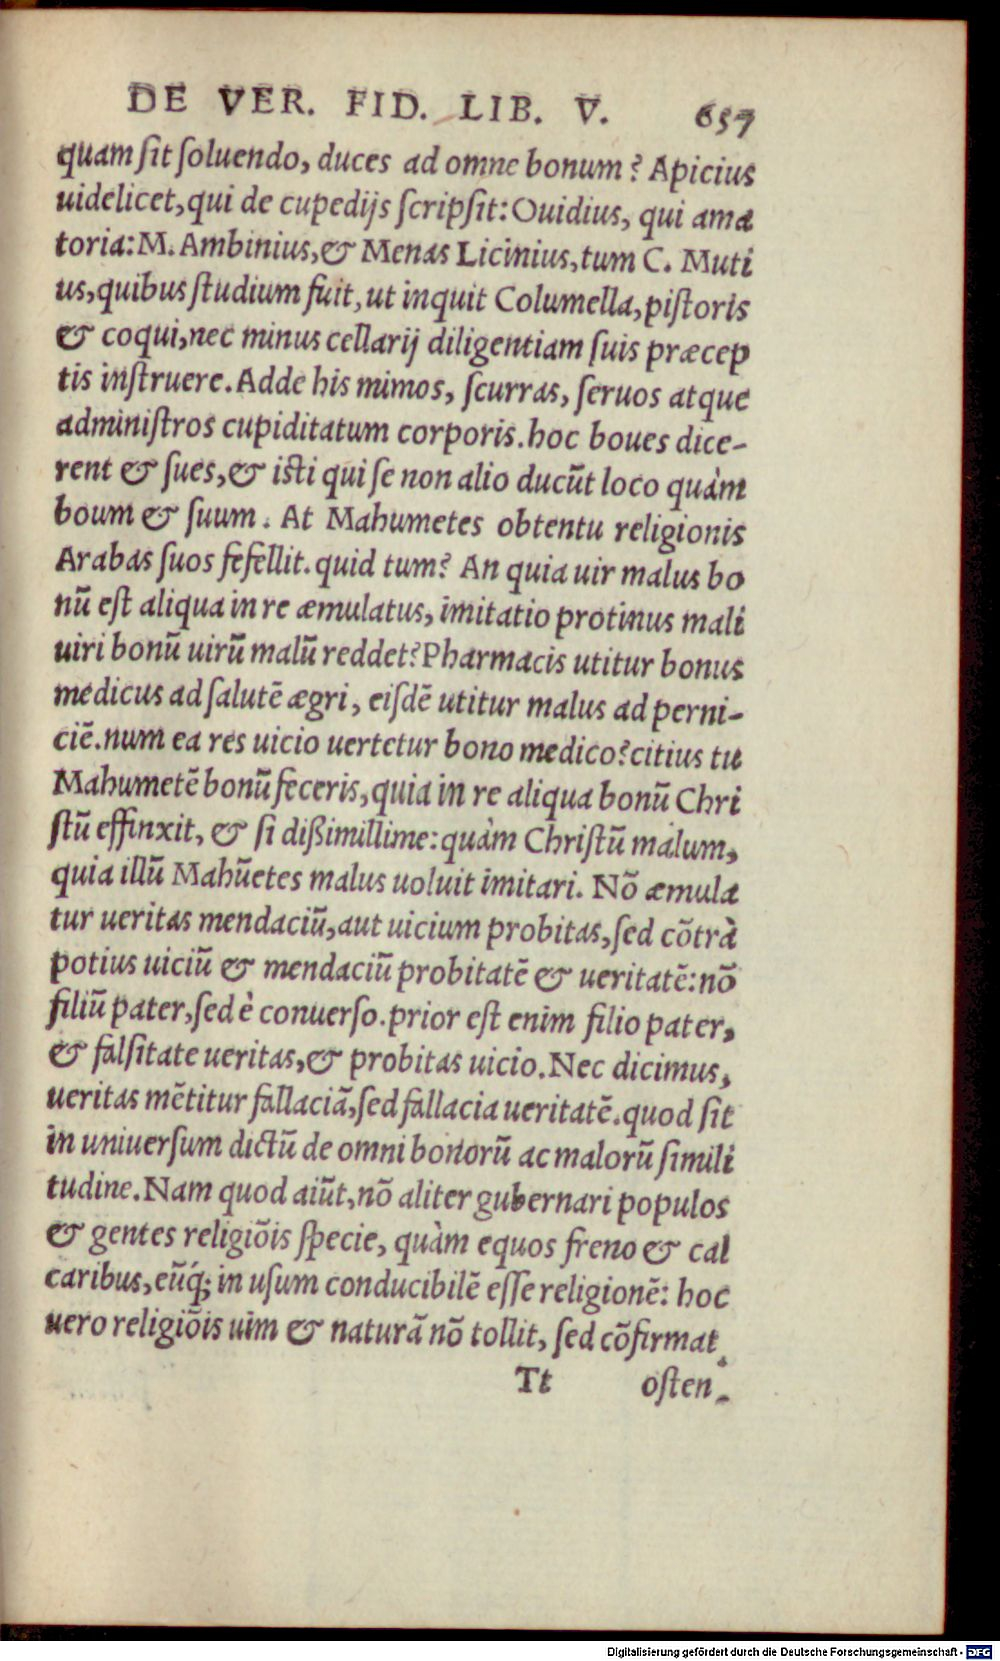 DE VER. FID. LIB. V. 657
quam ſit ſoluendo, duces ad omne bonum? Apicius
uidelicet, qui de cupedijs ſcripſit: Ouidius, qui ama
toria: M. Ambinius, & Menas Licinius, tum C. Muti
us, quibus ſtudium fuit, ut inquit Columella, piſtoris
& coqui, nec minus cellarij diligentiam ſuis præcep
tis inſtruere. Adde his mimos, ſcurras, ſeruos atque
adminiſtros cupiditatum corporis. hoc boues dice-
rent & ſues, & iſti qui ſe non alio ducūt loco quàm
boum & ſuum. At Mahumetes obtentu religionis
Arabas ſuos fefellit. quid tum? An quia uir malus bo
nū eſt aliqua in re æmulatus, imitatio protinus mali
uiri bonū uirū malū reddet? Pharmacis utitur bonus
medicus ad ſalutē ægri, eiſdē utitur malus ad perni-
ciē. num ea res uicio uertetur bono medico? citius tu
Mahumetē bonū feceris, quia in re aliqua bonū Chri
ſtū effinxit, & ſi dißimillime: quàm Chriſtū malum,
quia illū Mahūetes malus uoluit imitari. Nō æmula
tur ueritas mendaciū, aut uicium probitas, ſed cōtrà
potius uiciū & mendaciū probitatē & ueritatē: nō
filiū pater, ſed è conuerſo. prior eſt enim filio pater,
& falſitate ueritas, & probitas uicio. Nec dicimus,
ueritas mētitur fallaciā, ſed fallacia ueritatē. quod ſit
in uniuerſum dictū de omni bonorū ac malorū ſimili
tudine. Nam quod aiūt, nō aliter gubernari populos
& gentes religiōis ſpecie, quàm equos freno & cal
caribus, eūq́; in uſum conducibilē eſſe religionē: hoc
uero religiōis uim & naturā nō tollit, ſed cōfirmat
Tt oſten-
Digitalisierung gefördert durch die Deutsche Forschungsgemeinschaft - DFG